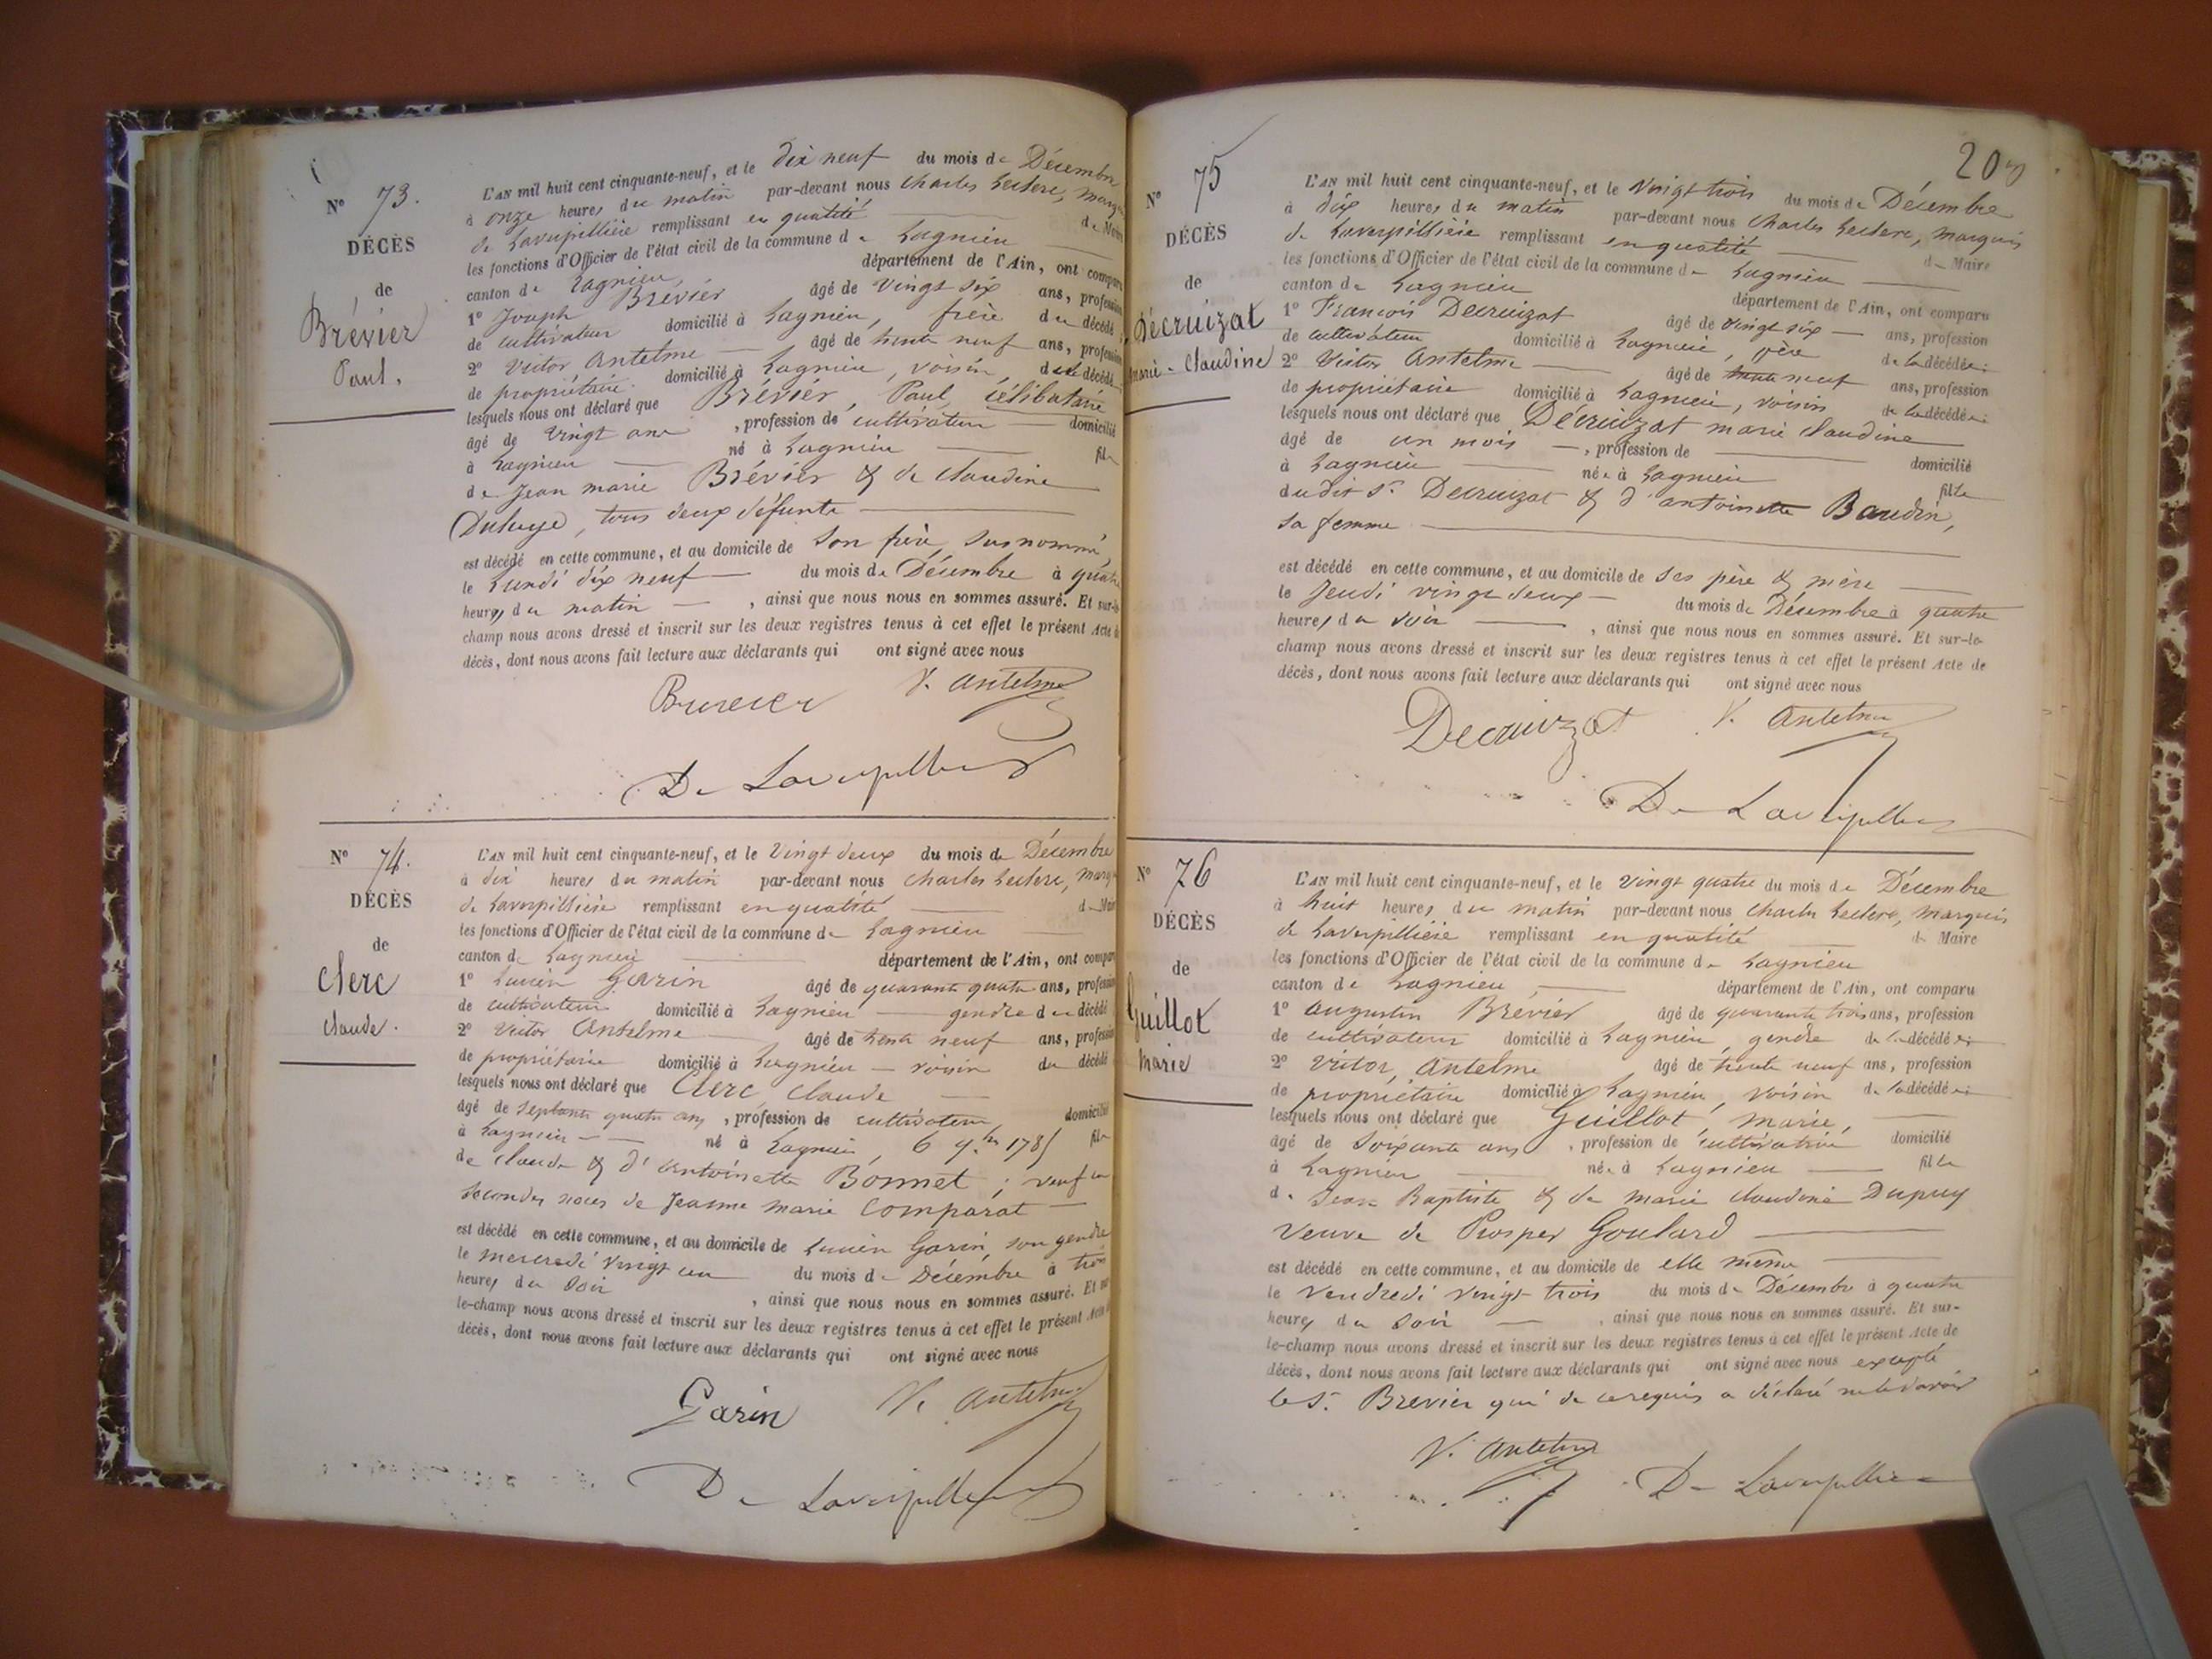 N° 73.
DÉCÈS
de
Brévier
Paul.
L'AN mil huit cent cinquante-neuf, et le dix neuf du mois de Décembre
à onze heures du matin par-devant nous Charles Leclerc, marq
de Laverpillière remplissant en qualité de Maire
les fonctions d'Officier de l'état civil de la commune de Lagnieu
canton de Lagnieu, département de l'Ain, ont comparu
1° Joseph Brévier âgé de vingt six ans, profession
de cultivateur domicilié à Lagnieu, frère du décédé
2° Victor Antelme âgé de trente neuf ans, profession
de propriétaire domicilié à Lagnieu, voisin du décédé
lesquels nous ont déclaré que Brévier, Paul, célibataire
âgé de vingt ans, profession de cultivateur domicilié
à Lagnieu né à Lagnieu fils
de Jean marie Brévier & de Claudine
tous deux défunts
est décédé en cette commune, et au domicile de son frère susnommé
le Lundi dix neuf du mois de Décembre à quatre
heures du matin, ainsi que nous nous en sommes assuré. Et sur-le-
champ nous avons dressé et inscrit sur les deux registres tenus à cet effet le présent Acte de
décès, dont nous avons fait lecture aux déclarants qui ont signé avec nous
V. Antelme
De Laverpilliere
N° 74.
DÉCÈS
de
Clerc
Claude.
L'AN mil huit cent cinquante-neuf, et le Vingt deux du mois de Décembre
à dix heures du matin par-devant nous Charles Leclerc, marq
de Laverpillière remplissant en qualité de Maire
les fonctions d'Officier de l'état civil de la commune de Lagnieu
canton de Lagnieu département de l'Ain, ont comparu
1° Lucien Garin âgé de quarante quatre ans, profession
de cultivateur domicilié à Lagnieu gendre du décédé
2° Victor Antelme âgé de trente neuf ans, profession
de propriétaire domicilié à Lagnieu voisin du décédé
lesquels nous ont déclaré que Clerc, Claude
âgé de septante quatre ans, profession de cultivateur domicilié
à Lagnieu né à Lagnieu, 6 9.bre 1785 fils
de Claude & d'Antoinette Bonnet; veuf en
secondes noces de Jeanne Marie Comparat
est décédé en cette commune, et au domicile de Lucien Garin, son gendre
le mercredi vingt un du mois de Décembre à trois
heures du soir, ainsi que nous nous en sommes assuré. Et sur-
le-champ nous avons dressé et inscrit sur les deux registres tenus à cet effet le présent Acte de
décès, dont nous avons fait lecture aux déclarants qui ont signé avec nous
Garin V. Antelme
De Laverpilliere
N° 75
DÉCÈS
de
Décruizat
marie-Claudine
L'AN mil huit cent cinquante-neuf, et le Vingt trois du mois de Décembre
à dix heures du matin par-devant nous Charles Leclerc, marquis
de Laverpillière remplissant en qualité de Maire
les fonctions d'Officier de l'état civil de la commune de Lagnieu
canton de Lagnieu département de l'Ain, ont comparu
1° François Decruizat âgé de vingt six ans, profession
de cultivateur domicilié à Lagnieu, père de la décédée;
2° Victor Antelme âgé de trente neuf ans, profession
de propriétaire domicilié à Lagnieu, voisin de la décédée;
lesquels nous ont déclaré que Décruizat marie Claudine
âgé de un mois, profession de domicilié
à Lagnieu née à Lagnieu fille
dudit Sr. Decruizat & d'antoinette Baudin,
sa femme
est décédé en cette commune, et au domicile de ses père & mère
le Jeudi vingt deux du mois de Décembre à quatre
heures du soir, ainsi que nous nous en sommes assuré. Et sur-le-
champ nous avons dressé et inscrit sur les deux registres tenus à cet effet le présent Acte de
décès, dont nous avons fait lecture aux déclarants qui ont signé avec nous
Decruizat V. Antelme
De Laverpilliere
N° 76
DÉCÈS
de
Guillot
Marie
L'AN mil huit cent cinquante-neuf, et le vingt quatre du mois de Décembre
à huit heures du matin par-devant nous Charles Leclerc, marquis
de Laverpillière remplissant en qualité de Maire
les fonctions d'Officier de l'état civil de la commune de Lagnieu
canton de Lagnieu, département de l'Ain, ont comparu
1° augustin Brévier âgé de quarante trois ans, profession
de cultivateur domicilié à Lagnieu, gendre de la décédée;
2° Victor, Antelme âgé de trente neuf ans, profession
de propriétaire domicilié à Lagnieu, voisin de la décédée;
lesquels nous ont déclaré que Guillot, marie,
âgé de soixante ans, profession de cultivatrice domicilié
à Lagnieu née à Lagnieu fille
de Jean Baptiste & de marie Claudine Dupuy
veuve de Prosper Goulard
est décédé en cette commune, et au domicile de elle même
le vendredi vingt trois du mois de Décembre à quatre
heures du soir, ainsi que nous nous en sommes assuré. Et sur-
le-champ nous avons dressé et inscrit sur les deux registres tenus à cet effet le présent Acte de
décès, dont nous avons fait lecture aux déclarants qui ont signé avec nous excepté
le Sr. Brevier qui de ce requis a déclaré ne le savoir
V. Antelme De Laverpilliere